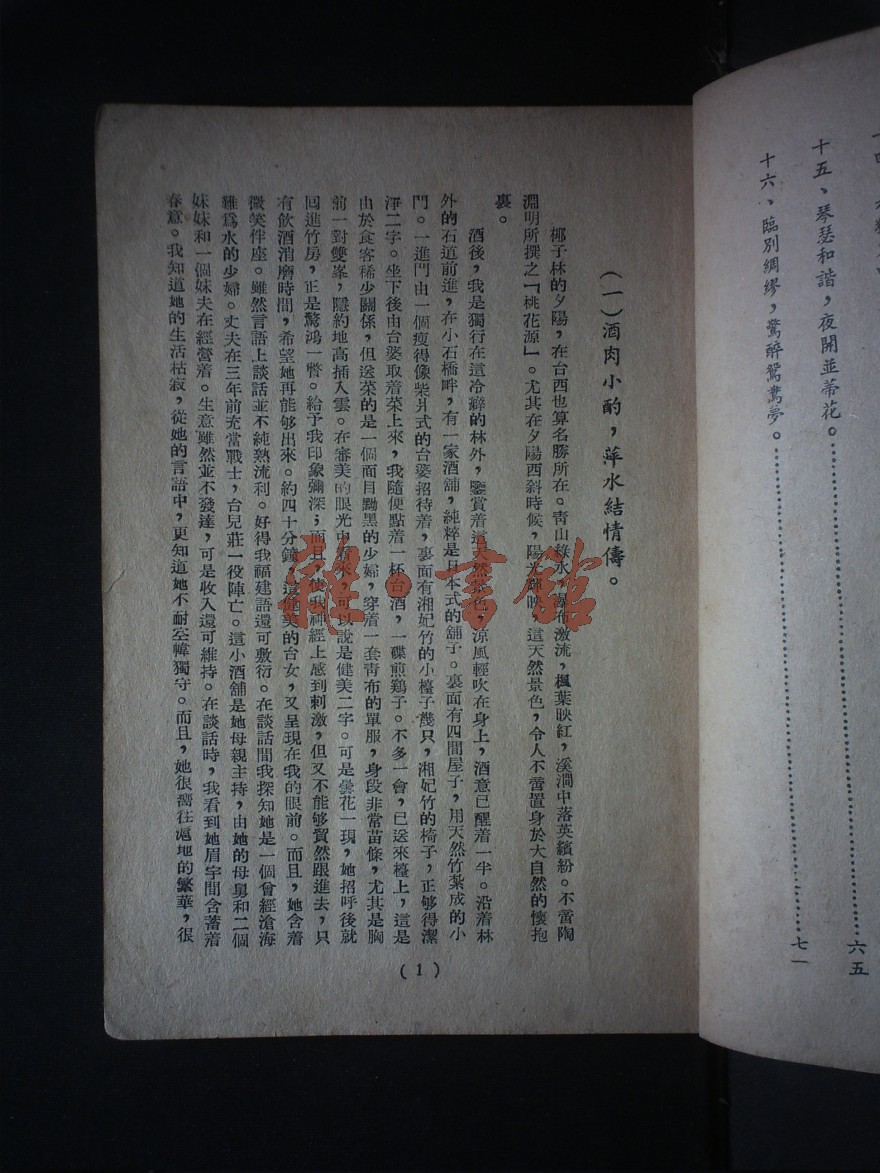 十五、琴瑟和諧，夜開並蒂花。……………………六五
十六、臨別綢繆，驚醉鴛鴦夢。……………………七一
（一）酒肉小酌，萍水結情儔。
椰子林的夕陽，在台西也算名勝所在。靑山綠水，瀑布激流，楓葉映紅，溪澗中落英繽紛。不啻陶
淵明所撰之「桃花源」。尤其在夕陽西斜時候，陽光輝映，這天然景色，令人不啻置身於大自然的懷抱
裏。
酒後，我是獨行在這冷癖的林外，鑒賞着這天然景色，涼風輕吹在身上，酒意已醒着一半。沿着林
外的石道前進，在小石橋畔，有一家酒舖，純粹是日本式的舖子。裏面有四間屋子，用天然竹紮成的小
門。一進門由一個瘦得像柴爿式的台婆招待着，裏面有湘妃竹的小檯子幾只，湘妃竹的椅子，正夠得潔
淨二字。坐下後由台婆取着菜上來，我隨便點着一杯台酒，一碟煎鷄子。不多一會，已送來檯上，這是
由於食客稀少關係，但送菜的是一個面目黝黑的少婦，穿着一套靑布的單服，身段非常苗條，尤其是胸
前一對雙峯，隱約地高插入雲。在審美的眼光中看來，可以說是健美二字。可是曇花一現，她招呼後就
回進竹房，正是驚鴻一瞥。給予我印象彌深；而且，使我神經上感到刺激，但又不能够貿然跟進去，只
有飲酒消磨時間，希望她再能够出來。約四十分鐘，這健美的台女，又呈現在我的眼前。而且，她含着
微笑伴座。雖然言語上談話並不純熟流利。好得我福建語還可敷衍。在談話間我探知她是一個曾經滄海
難爲水的少婦。丈夫在三年前充當戰士，台兒莊一役陣亡。這小酒舖是她母親主持，由她的母舅和二個
妹妹和一個妹夫在經營着。生意雖然並不發達，可是收入還可維持。在談話時，我看到她眉宇間含蓄着
春意。我知道她的生活枯寂，從她的言語中，更知道她不耐空幃獨守。而且，她很嚮往滬地的繁華，很
(1)
雜·書館